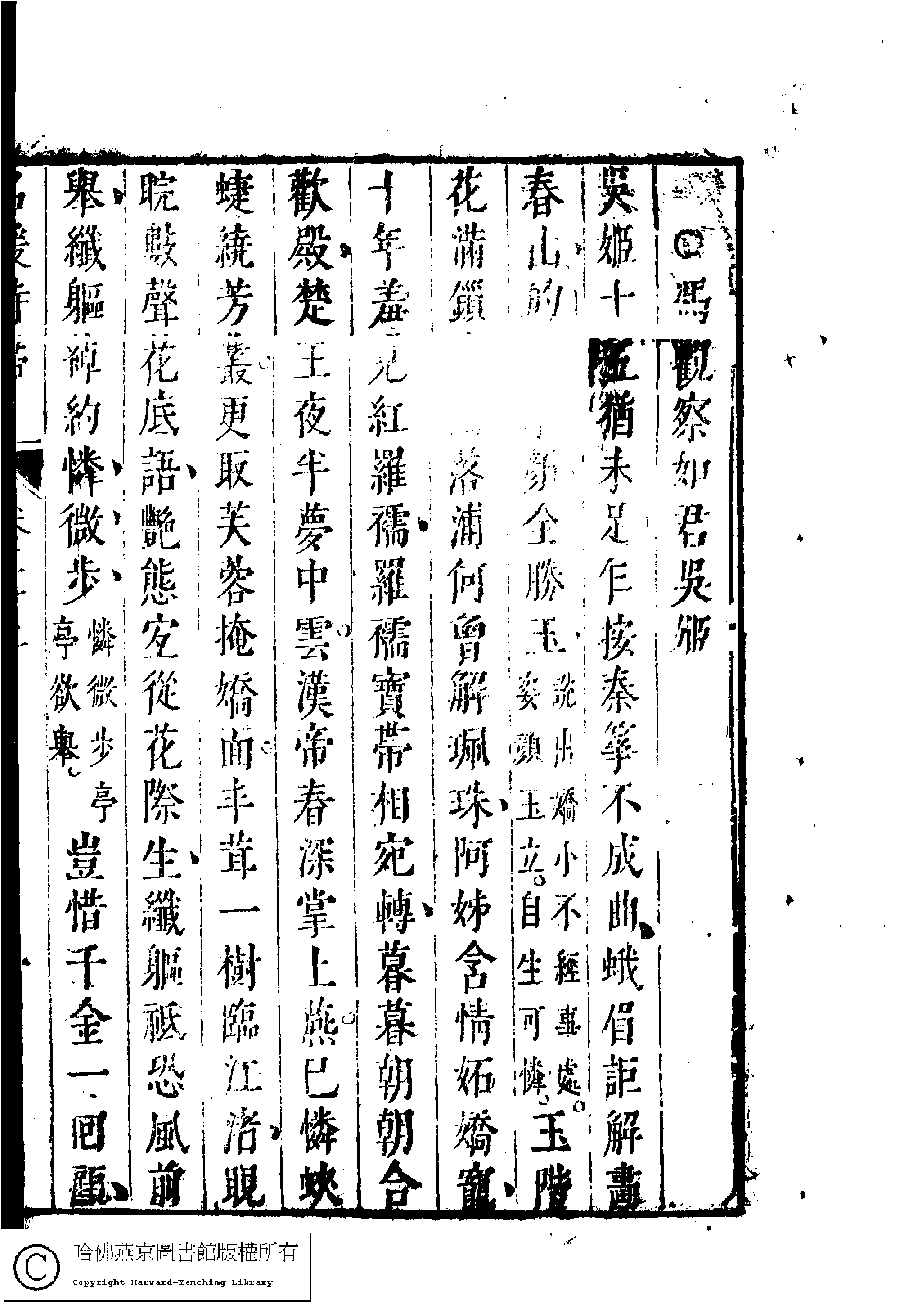 馮觀察如君吳姬
吳姬十五猶未足乍按秦箏不成曲蛾眉詎解畫
春山的 顏全勝玉洗出嬌小不經事處。姿顏玉立。自生可憐。玉階
花滿鎖 落浦何曾解珮珠阿姊含情妬嬌寵
十年羞見紅羅襦羅襦寶帶相宛轉暮暮朝朝合
歡殿楚王夜半夢中雲漢帝春深掌上燕已憐蛺
蜨繞芳叢更取芙蓉掩嬌面丰茸一樹臨江渚睍
睆數聲花底語艷態定從花際生纖軀祗恐風前
舉纖軀綽約憐微步憐微步亭亭欲舉。豈惜千金一回顧
名媛詩歸
哈佛燕京圖書館版權所有
Copyright Harvard-Yenching Library